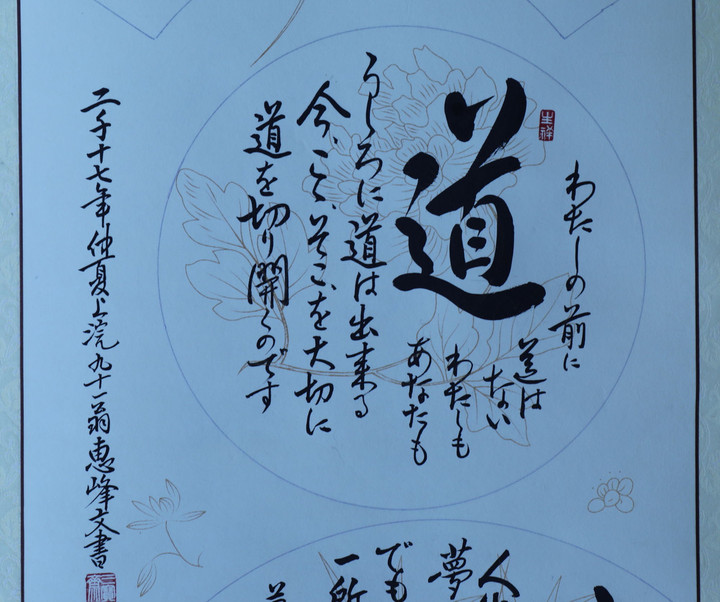 道
わたしの前に
道は
ない
わたしも
あなたも
うしろに道は出来る
今、こゝ、そこ、を大切に
道を切り開くのです
二千十七年仲夏上浣九十一翁恵峰文書
人
夢
でも
一所